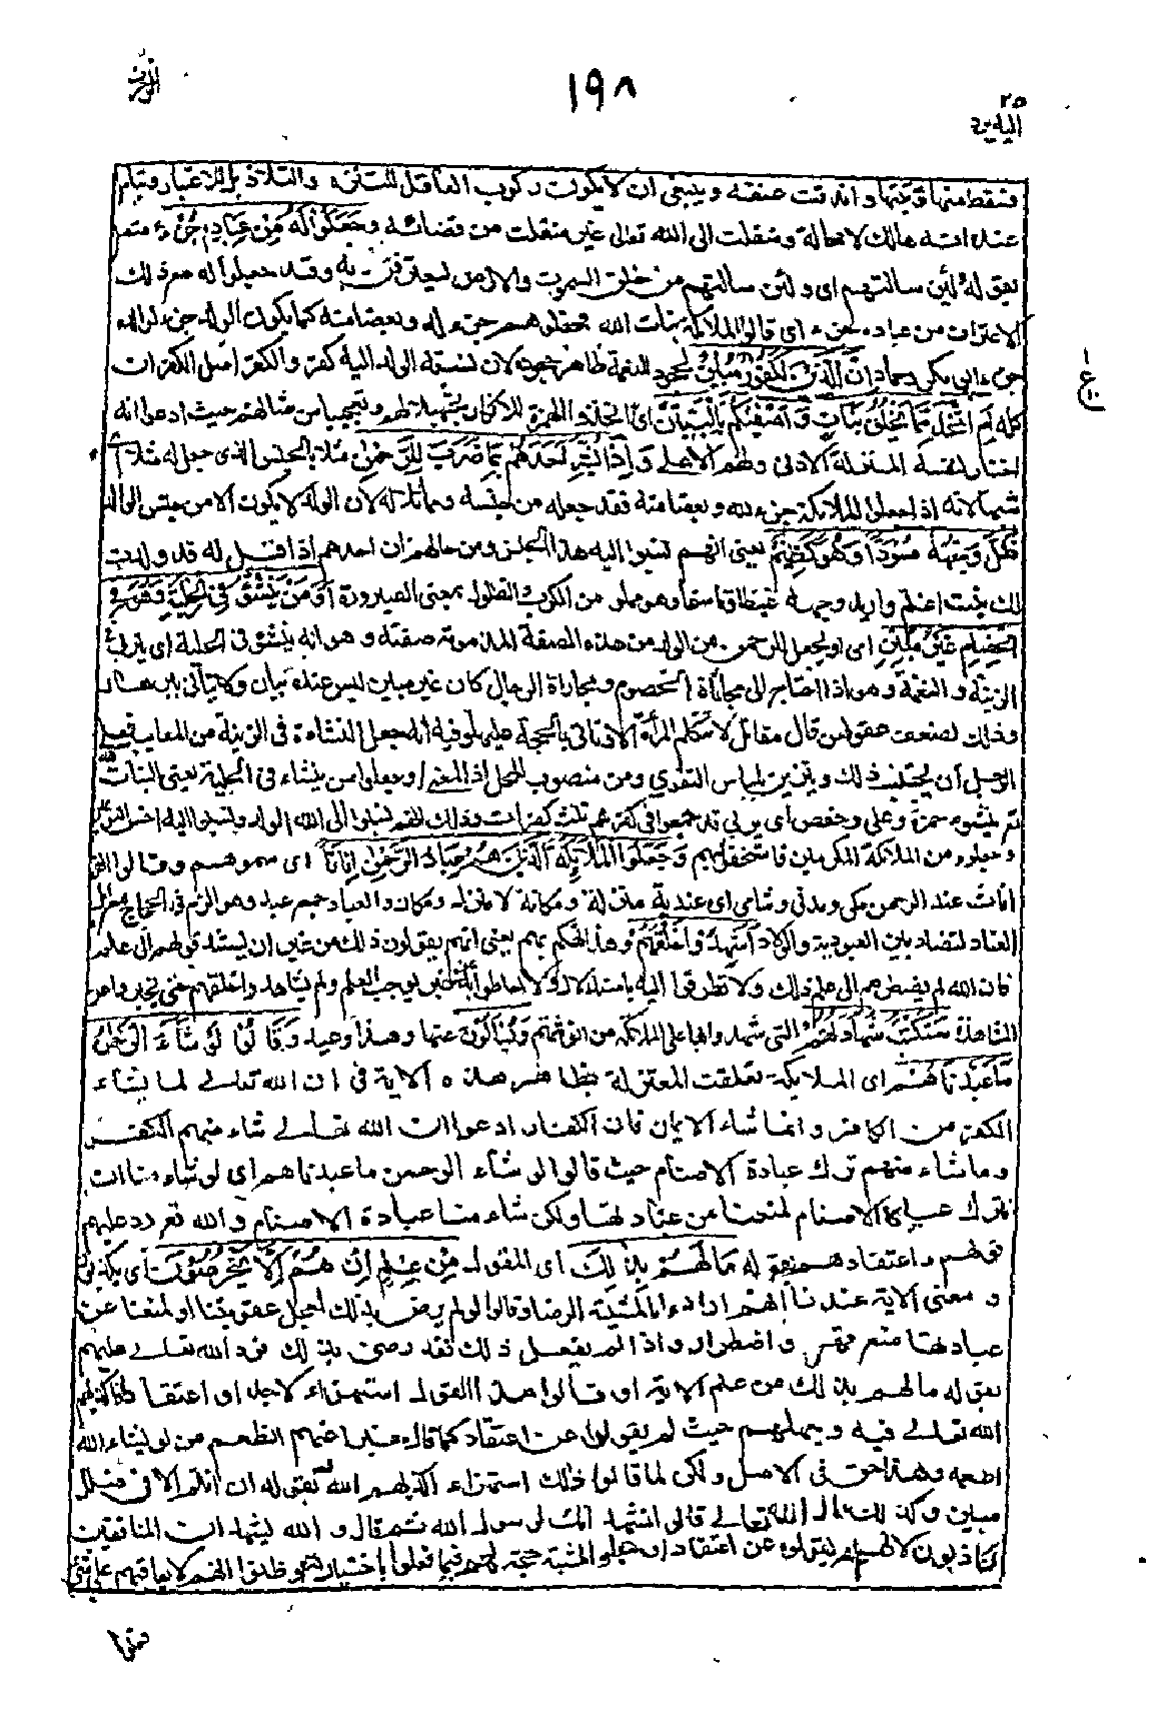 الزخرف
١٩٨
٢٥
اليه يرد
فسقط منها وثبتها واند قت عنقه وينبغي ان لا يكون ركوب العاقل للتنزه والتلذذ بل للاعتبار ويتامل
عنده انه هالك لا محالة ومنقلب الى الله تعالى غير منفلت من قضائه وجعلوا له من عباده جزء متصل
بقوله ولئن سالتهم اى ولئن سالتهم من خلق السموت والارض ليعترفن به وقد جعلوا له مع ذلك
الاعتراف من عباده جزء اى قالوا الملائكة بنات الله فجعلوهم جزء له وبعضا منه كما يكون الولد جزء لوالده
جزء ابى بكر وحماد ان الانسان لكفور مبين لجحود للنعمة ظاهر جحوده لان نسبته الولد اليه كفر والكفر اصل الكفران
كله ام اتخذ مما يخلق بنات واصفيكم بالبنين اى اتخذ والهمزة للانكار تجهيلا لهم وتعجيبا من شانهم حيث ادعوا انه
اختار لنفسه المنزلة الادنى ولهم الاعلى واذا بشر احدهم بما ضرب للرحمن مثلا بالجنس الذى جعل له مثلا اى
شبها لانه اذا جعلوا الملائكة جزء لله وبعضا منه فقد جعله من جنسه ومماثلا له لان الولد لا يكون الا من جنس الوالد
ظل وجهه مسودا وهو كظيم يعنى انهم نسبوا اليه هذا الجنس ومن حالهم ان احدهم اذا قيل له قد ولدت
لك بنت اغتم واربد وجهه غيظا وتاسفا وهو مملو من الكرب والظلول بمعنى الصيرورة او من ينشؤ فى الحلية وهو فى
الخصام غير مبين اى او يجعل للرحمن من الولد من هذه الصفة المذمومة صفته وهو انه ينشؤ فى الحلية اى يتربى فى
الزينة والنعمة وهو اذا احتاج الى مجاثاة الخصوم ومجاراة الرجال كان غير مبين ليس عنده بيان ولا ياتى ببرهان
وذلك لضعف عقولهن قال مقاتل لا تتكلم المرأة الا وتاتى بالحجة عليها وفيه انه جعل النشاءة فى الزينة من المعايب فعلى
الرجل ان يجتنب ذلك ويتزين بلباس التقوى ومن منصوب المحل اذ المعنى او جعلوا من ينشاء فى الحلية يعنى البنات لله
ثم ينشؤ حمزة وعلى وحفص اى يربى قد جمعوا فى كفرهم ثلث كفرات وذلك انهم نسبوا الى الله الولد ونسبوا اليه اخس النوعين
وجعلوه من الملائكة المكرمين فاستخفوا بهم وجعلوا الملائكة الذين هم عباد الرحمن اناثا اى سموهم وقالوا انهم
اناث عند الرحمن مكى ومدنى وشامى اى عندية منزلة ومكانة لا منزل ومكان والعباد جمع عبد وهو الزم فى الحجاج مع اهل
العناد لتضاد بين العبودية والولاد اشهدوا خلقهم وهذا تهكم بهم يعنى انهم يقولون ذلك من غير ان يستند قولهم الى علم
فان الله لم يضطرهم الى علم ذلك ولا تطرقوا اليه باستدلال ولا احاطوا به عن خبر يوجب العلم ولم يشاهدوا خلقهم حتى يخبروا عن
المشاهدة ستكتب شهادتهم التى شهدوا بها على الملائكة من انوثتهم ويسألون عنها وهذا وعيد وقالوا لو شاء الرحمن
ما عبدناهم اى الملائكة تعلقت المعتزلة بظاهر هذه الاية فى ان الله تعالى لم يشاء
الكفر من الكافر وانما شاء الايمان فان الكفار ادعوا ان الله تعالى شاء منهم الكفر
وما شاء منهم ترك عبادة الاصنام حيث قالوا لو شاء الرحمن ما عبدناهم اى لو شاء منا ان
نترك عبادة الاصنام لمنعنا من عبادتها ولكن شاء منا عبادة الاصنام والله تع رد عليهم
قولهم واعتقادهم بقوله ما لهم بذلك اى المقول من علم ان هم الا يخرصون اى يكذبون
و معنى الاية عندنا انهم ارادوا بالمشية الرضا وقالوا لو لم يرض بذلك لعجل عقوبتنا او لمنعنا عن
عبادتها منع قهر واضطرار واذا لم يفعل ذلك فقد رضى بذلك فرد الله تعالى عليهم
بقوله ما لهم بذلك من علم الاية او قالوا هذا القول استهزاء لا جدا واعتقادا فاكذبهم
الله تعالى فيه وجهلهم حيث لم يقولوا عن اعتقاد كما قال مخبرا عنهم انطعم من لو يشاء الله
اطعمه وهذا حق فى الاصل ولكن لما قالوا ذلك استهزاء اكذبهم الله بقوله ان انتم الا فى ضلل
مبين وكذلك قال الله تعالى قالوا نشهد انك لرسول الله ثم قال والله يشهد ان المنافقين
لكاذبون لانهم لم يقولوه عن اعتقاد او جعلوا المشية حجة لهم فيما فعلوا باختيارهم وظنوا انهم لا يعاقبهم على شئ
ع